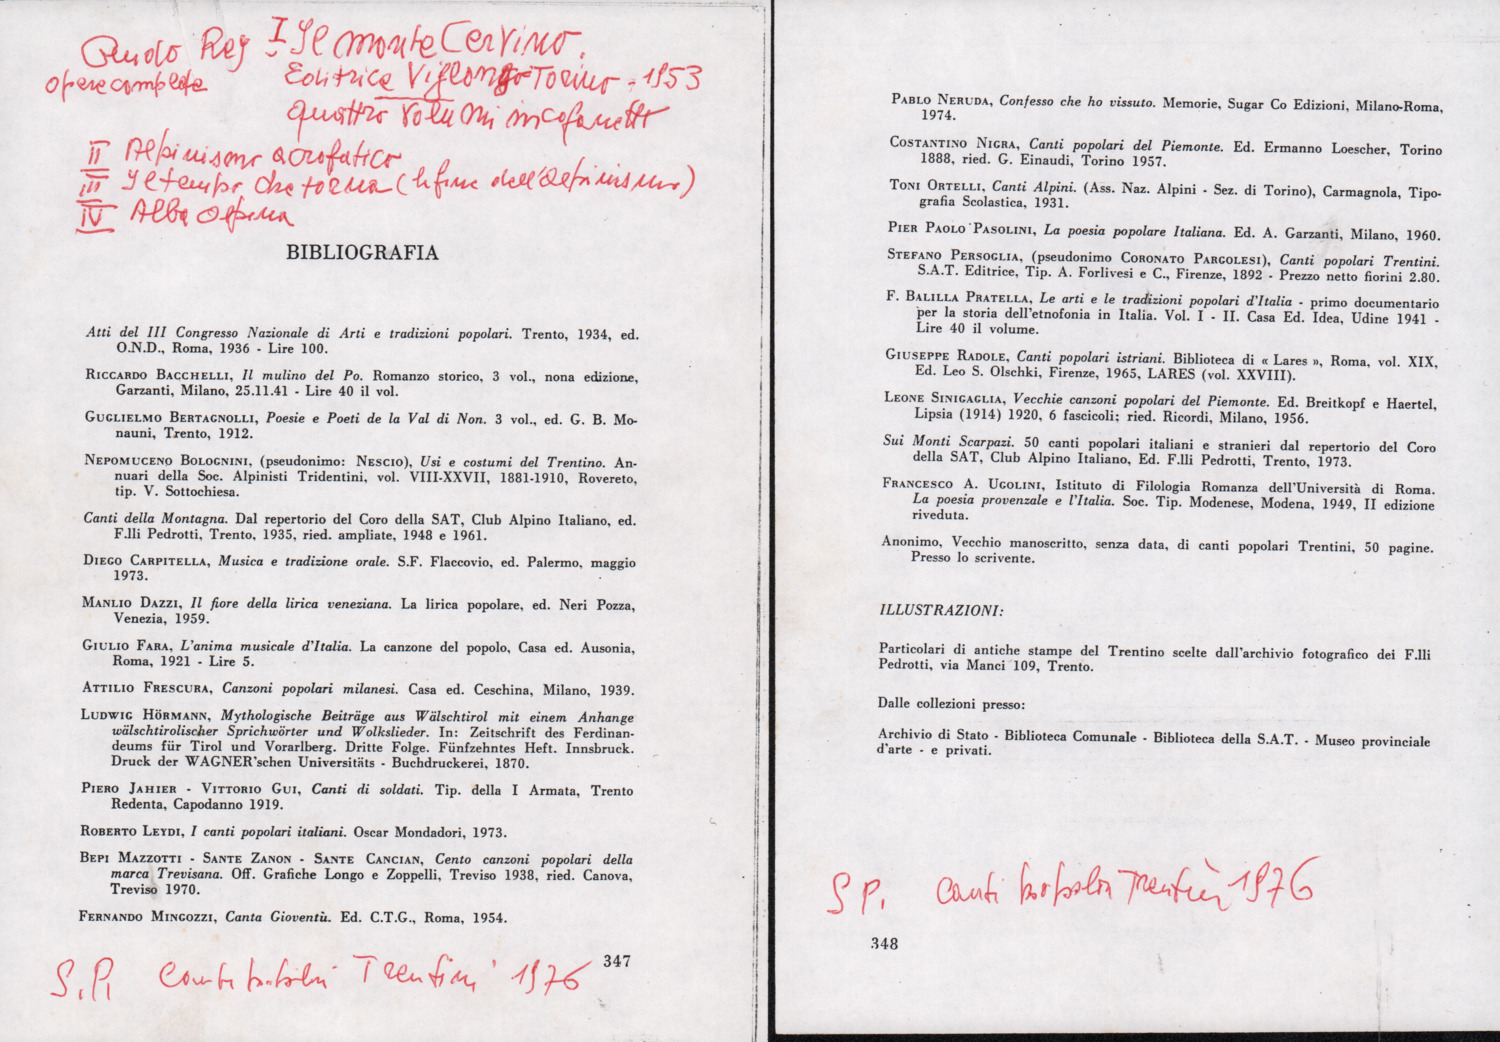 Guido Rey I Il monte Cervino.
opere complete Editrice Viglongo Torino - 1953
quattro volumi in cofanetto
II Alpinismo acrobatico
III Il tempo che torna (la fine dell'alpinismo)
IV Alba alpina
BIBLIOGRAFIA
Atti del III Congresso Nazionale di Arti e tradizioni popolari. Trento, 1934, ed.
O.N.D., Roma, 1936 - Lire 100.
RICCARDO BACCHELLI, Il mulino del Po. Romanzo storico, 3 vol., nona edizione,
Garzanti, Milano, 25.11.41 - Lire 40 il vol.
GUGLIELMO BERTAGNOLLI, Poesie e Poeti de la Val di Non. 3 vol., ed. G. B. Mo-
nauni, Trento, 1912.
NEPOMUCENO BOLOGNINI, (pseudonimo: NESCIO), Usi e costumi del Trentino. An-
nuari della Soc. Alpinisti Tridentini, vol. VIII-XXVII, 1881-1910, Rovereto,
tip. V. Sottochiesa.
Canti della Montagna. Dal repertorio del Coro della SAT, Club Alpino Italiano, ed.
F.lli Pedrotti, Trento, 1935, ried. ampliate, 1948 e 1961.
DIEGO CARPITELLA, Musica e tradizione orale. S.F. Flaccovio, ed. Palermo, maggio
1973.
MANLIO DAZZI, Il fiore della lirica veneziana. La lirica popolare, ed. Neri Pozza,
Venezia, 1959.
GIULIO FARA, L'anima musicale d'Italia. La canzone del popolo, Casa ed. Ausonia,
Roma, 1921 - Lire 5.
ATTILIO FRESCURA, Canzoni popolari milanesi. Casa ed. Ceschina, Milano, 1939.
LUDWIG HÖRMANN, Mythologische Beiträge aus Wälschtirol mit einem Anhange
wälschtirolischer Sprichwörter und Wolkslieder. In: Zeitschrift des Ferdinan-
deums für Tirol und Vorarlberg. Dritte Folge. Fünfzehntes Heft. Innsbruck.
Druck der WAGNER'schen Universitäts - Buchdruckerei, 1870.
PIERO JAHIER - VITTORIO GUI, Canti di soldati. Tip. della I Armata, Trento
Redenta, Capodanno 1919.
ROBERTO LEYDI, I canti popolari italiani. Oscar Mondadori, 1973.
BEPI MAZZOTTI - SANTE ZANON - SANTE CANCIAN, Cento canzoni popolari della
marca Trevisana. Off. Grafiche Longo e Zoppelli, Treviso 1938, ried. Canova,
Treviso 1970.
FERNANDO MINGOZZI, Canta Gioventù. Ed. C.T.G., Roma, 1954.
347
S.P. Canti popolari Trentini 1976
PABLO NERUDA, Confesso che ho vissuto. Memorie, Sugar Co Edizioni, Milano-Roma,
1974.
COSTANTINO NIGRA, Canti popolari del Piemonte. Ed. Ermanno Loescher, Torino
1888, ried. G. Einaudi, Torino 1957.
TONI ORTELLI, Canti Alpini. (Ass. Naz. Alpini - Sez. di Torino), Carmagnola, Tipo-
grafia Scolastica, 1931.
PIER PAOLO PASOLINI, La poesia popolare Italiana. Ed. A. Garzanti, Milano, 1960.
STEFANO PERSOGLIA, (pseudonimo CORONATO PARGOLESI), Canti popolari Trentini.
S.A.T. Editrice, Tip. A. Forlivesi e C., Firenze, 1892 - Prezzo netto fiorini 2.80.
F. BALILLA PRATELLA, Le arti e le tradizioni popolari d'Italia - primo documentario
per la storia dell'etnofonia in Italia. Vol. I - II. Casa Ed. Idea, Udine 1941 -
Lire 40 il volume.
GIUSEPPE RADOLE, Canti popolari istriani. Biblioteca di « Lares », Roma, vol. XIX,
Ed. Leo S. Olschki, Firenze, 1965, LARES (vol. XXVIII).
LEONE SINIGAGLIA, Vecchie canzoni popolari del Piemonte. Ed. Breitkopf e Haertel,
Lipsia (1914) 1920, 6 fascicoli; ried. Ricordi, Milano, 1956.
Sui Monti Scarpazi. 50 canti popolari italiani e stranieri dal repertorio del Coro
della SAT, Club Alpino Italiano, Ed. F.lli Pedrotti, Trento, 1973.
FRANCESCO A. UGOLINI, Istituto di Filologia Romanza dell'Università di Roma.
La poesia provenzale e l'Italia. Soc. Tip. Modenese, Modena, 1949, II edizione
riveduta.
Anonimo, Vecchio manoscritto, senza data, di canti popolari Trentini, 50 pagine.
Presso lo scrivente.
ILLUSTRAZIONI:
Particolari di antiche stampe del Trentino scelte dall'archivio fotografico dei F.lli
Pedrotti, via Manci 109, Trento.
Dalle collezioni presso:
Archivio di Stato - Biblioteca Comunale - Biblioteca della S.A.T. - Museo provinciale
d'arte - e privati.
S P. Canti popolari Trentini 1976
348